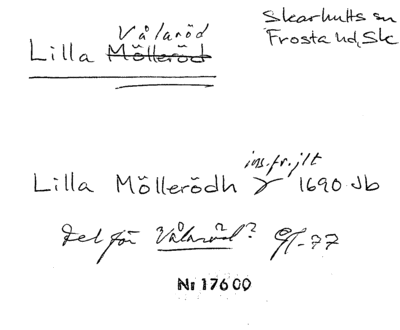 Vålaröd
Lilla Mölleröd
Skarhults sn
Frosta hd, Sk
ins. fr. jlt
Lilla Möllerödh 1690 Jb
fel för Vålaröd? -77
Nr 17600